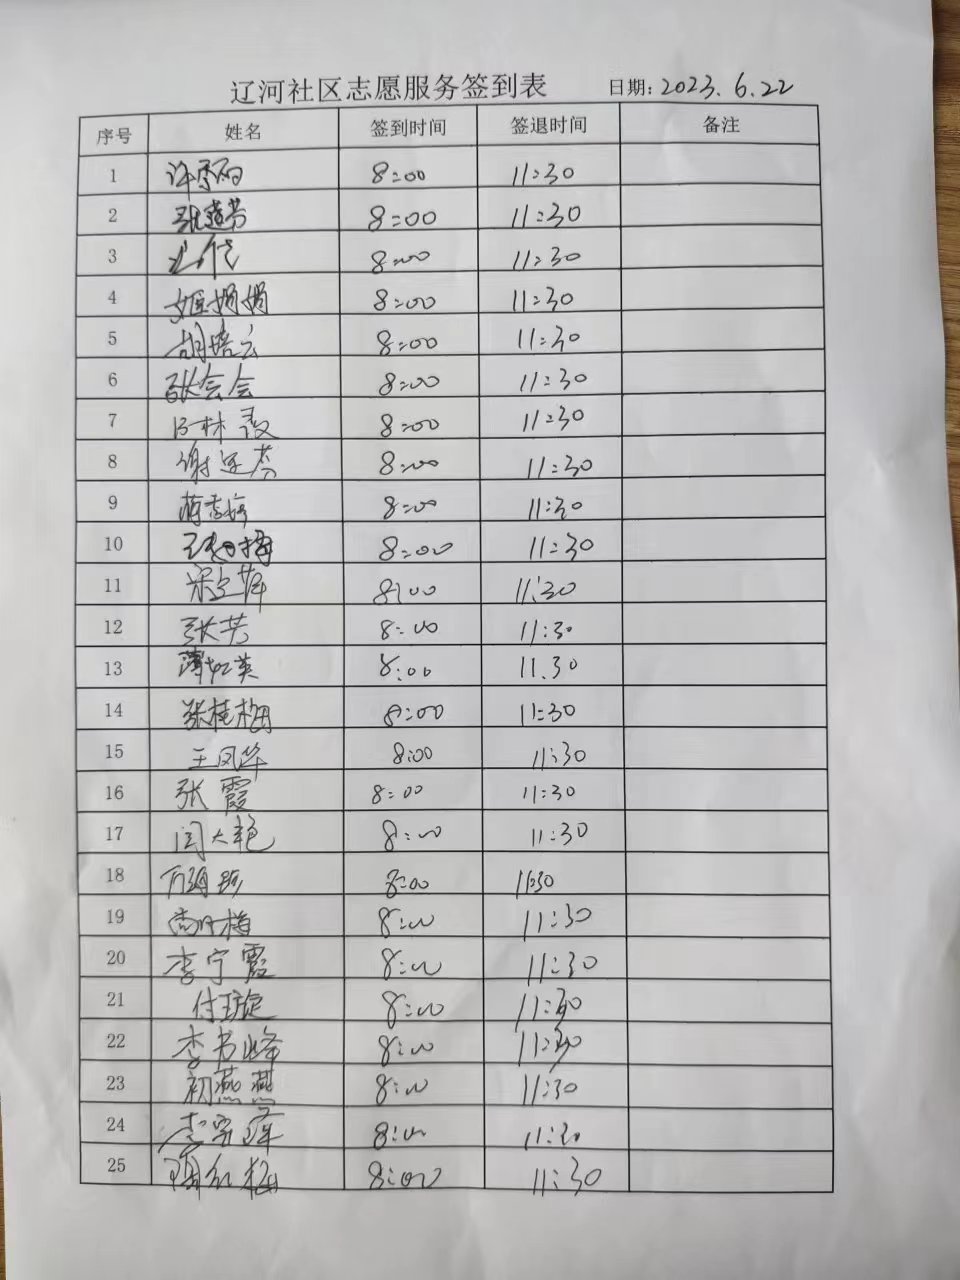 辽河社区志愿服务签到表 日期:2023.6.22
序号 姓名 签到时间 签退时间 备注
1 8:00 11:30
2 张莲芳 8:00 11:30
3 8:00 11:30
4 姬娟娟 8:00 11:30
5 胡培云 8:00 11:30
6 张会会 8:00 11:30
7 8:00 11:30
8 谢 8:00 11:30
9 8:00 11:30
10 8:00 11:30
11 8:00 11:30
12 张芳 8:00 11:30
13 薄红英 8:00 11.30
14 张桂梅 8:00 11:30
15 王凤华 8:00 11:30
16 张霞 8:00 11:30
17 闫大艳 8:00 11:30
18 8:00 11:30
19 8:00 11:30
20 李宁霞 8:00 11:30
21 付璇 8:00 11:30
22 李书峰 8:00 11:30
23 初燕燕 8:00 11:30
24 8:00 11:30
25 周红梅 8:00 11:30